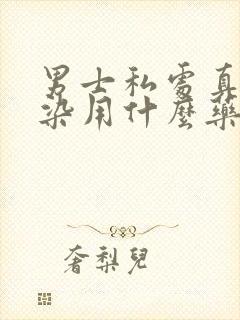 男士私處真
染用什麼藥
奢梨兒